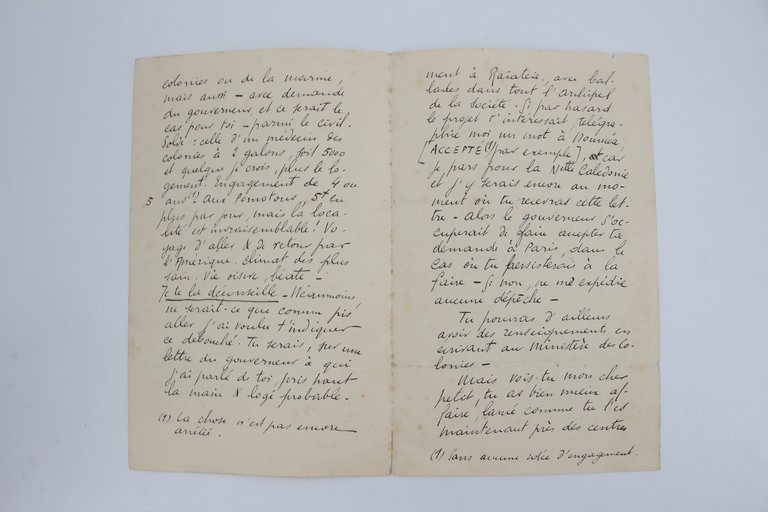 colonies ou de la marine,
mais aussi – avec demande
du gouverneur et ce serait le
cas pour toi – parmi le civil.
Solde : celle d'un médecin des
colonies à 2 galons, soit 5000
et quelque je crois, plus le lo-
gement. Engagement de 4 ou
5 ans (1). Aux Pomotous, 5f en
plus par jour, mais la loca-
lité est invraisemblable ! Vo-
yage d'aller & de retour par
l'Amérique. Climat des plus
sain. Vie oisive, béate –
Je te la déconseille – Néanmoins
ne serait-ce que comme pis
aller, j'ai voulu t'indiquer
ce débouché. Tu serais, sur une
lettre du gouverneur à qui
j'ai parlé de toi, pris haut
la main & logé probable-
(1) La chose n'est pas encore
arrêtée.
ment à Raïatéa, avec bal-
lades dans tout l'archipel
de la Société. Si par hasard
le projet t'intéressait, télégra-
phie moi un mot à Nouméa,
[ACCEPTE (1) par exemple], car
je pars pour la Nlle Calédonie
et j'y serais encore au mo-
ment où tu recevras cette let-
tre – Alors le gouverneur s'oc-
cuperait de faire accepter ta
demande à Paris, dans le
cas où tu persisterais à la
faire – Si non, ne me expédie
aucune dépêche –
Tu pourras d'ailleurs
avoir des renseignements en
écrivant au Ministère des Co-
lonies –
Mais vois-tu mon cher
petit, tu as bien mieux af-
faire, lancé comme tu l'es
maintenant près des centres
(1) Sans aucune idée d'engagement.